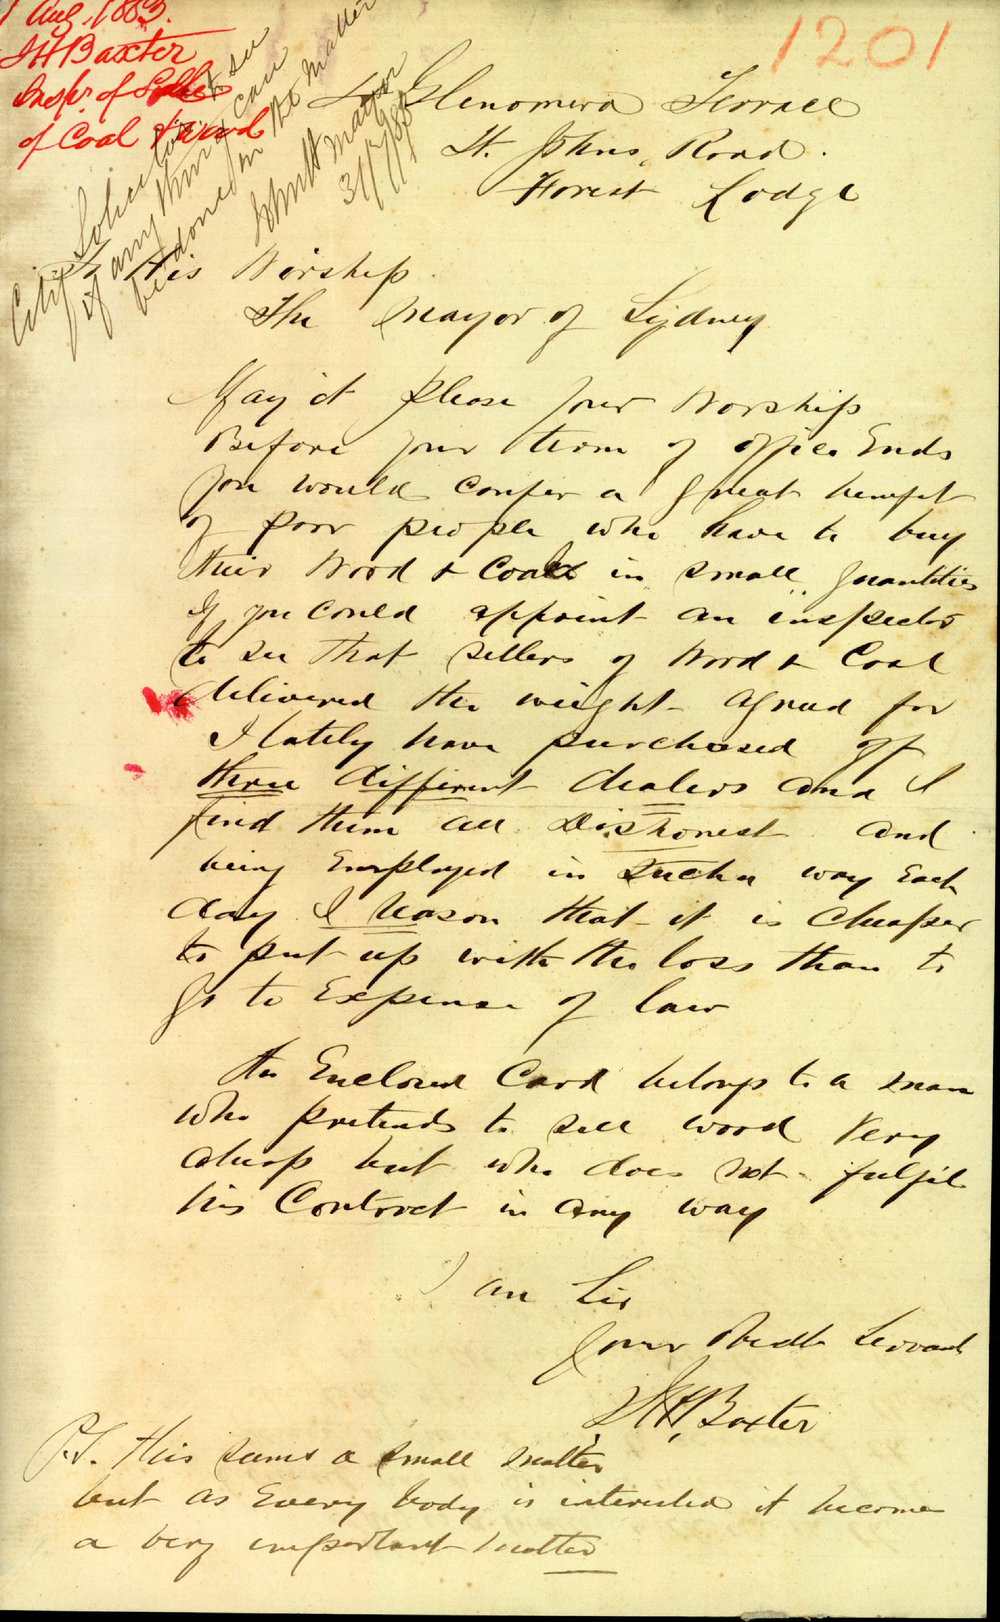 1 Aug. 1883.
J H Baxter
Inspr. of Sales
of Coal & Wood
1201
City Solicitor to see
if any thing can
be done in the matter
Mayor
31/7/83
4 Glenomera Terrace
St. Johns, Road.
Forest Lodge
To His Worship
The Mayor of Sydney
May it please your Worship
Before your term of office Ends
you would confer a great benefit
of poor people who have to buy
their Wood & Coal in small quantities
if you could appoint an inspector
to see that sellers of Wood & Coal
delivered the weight agreed for
I lately have purchased off
three different dealers and I
find them all Dishonest and
being Employed in such a way Each
day I reason that it is cheaper
to put up with the loss than to
go to Expense of law
the Enclosed Card belongs to a man
who pretends to sell wood very
cheap but who does not fulfil
his Contract in any way
I am Sir
your Obedt Servant
J H, Baxter
P.S. this seems a small matter
but as Every body is interested it become
a very important matter